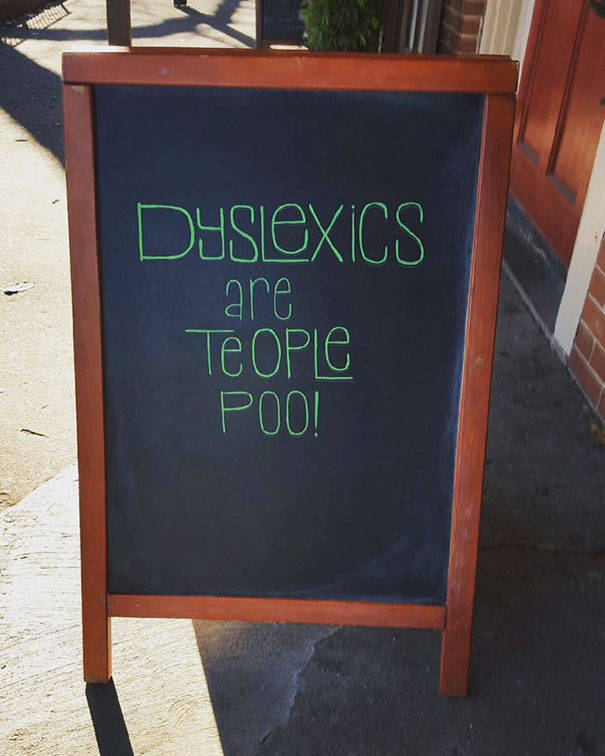 DYSLEXICS
are
TEOPLE
POO!